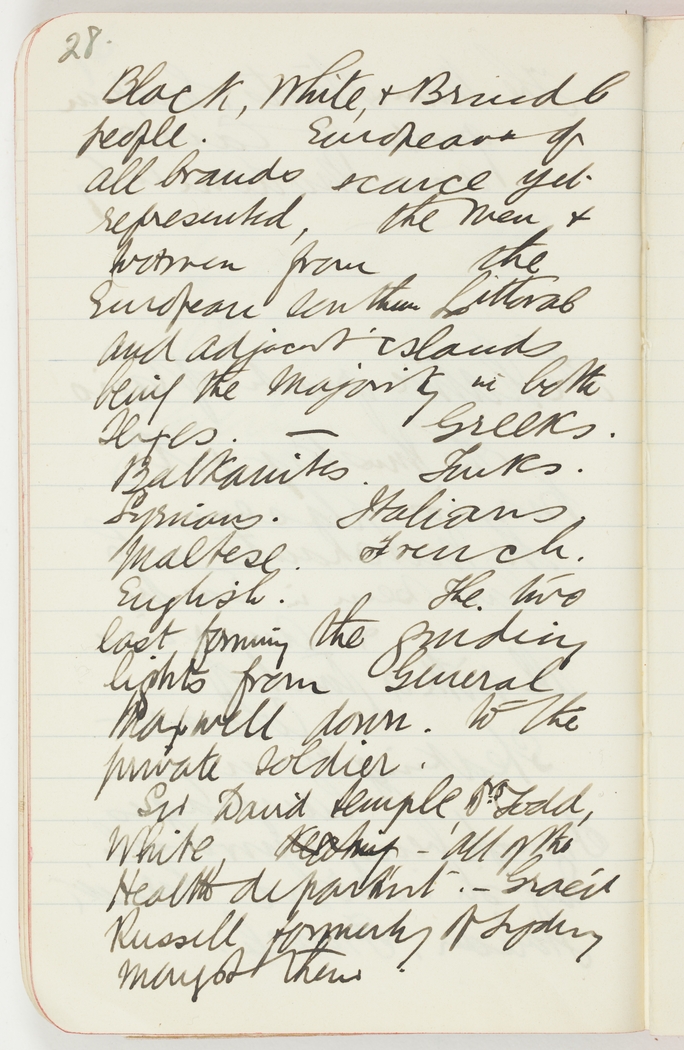 28.
Black, White, & Brindle
people. Europeans of
all brands scarce yet
represented, the men &
women from the
European southern Littoral
and adjacent islands
being the majority in both
Sexes. — Greeks.
Balkanites. Turks.
Syrians. Italians.
Maltese. French.
English. The two
last forming the guiding
lights from General
Maxwell down. to the
private soldier.
Sir David Semple, Drs Todd,
White, - all of the
Health department. -
Russell formerly of Sydney
mongst them.